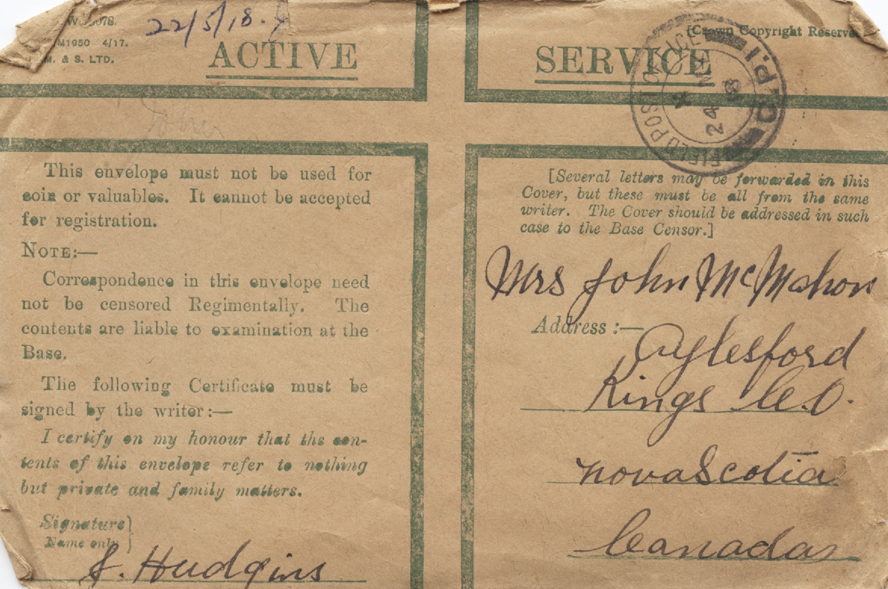 22/5/18.
M1950 4/17.
& S. LTD.
(Crown Copyright Reserve
ACTIVE SERVICE
FIELD POST OFFICE
24
This envelope must not be used for
coin or valuables. It cannot be accepted
for registration.
NOTE:—
Correspondence in this envelope need
not be censored Regimentally. The
contents are liable to examination at the
Base.
The following Certificate must be
signed by the writer:—
I certify on my honour that the con-
tents of this envelope refer to nothing
but private and family matters.
Signature
Name only
J. Hudgins
[Several letters may be forwarded in this
Cover, but these must be all from the same
writer. The Cover should be addressed in such
case to the Base Censor.]
Mrs John McMahon
Address:—
Aylesford
Kings Co.
Nova Scotia
Canada